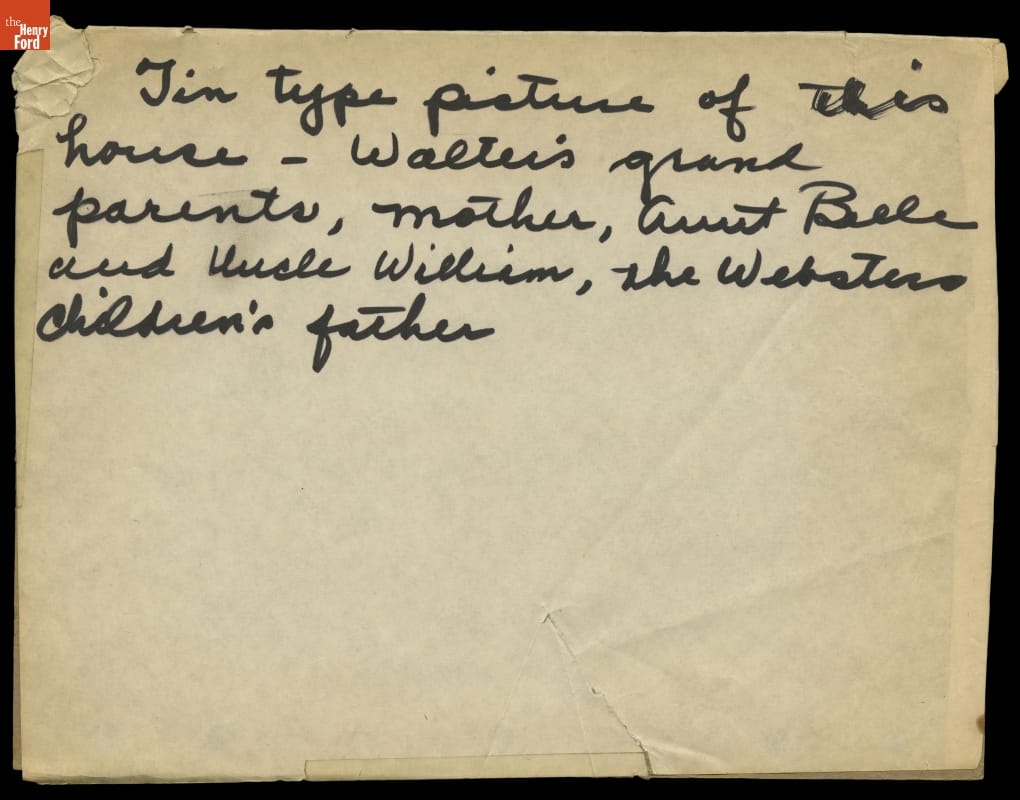 the
Henry
Ford
Tin type picture of this
house - Walter's grand
parents, mother, Aunt Belle
and Uncle William, the Websters
children's father